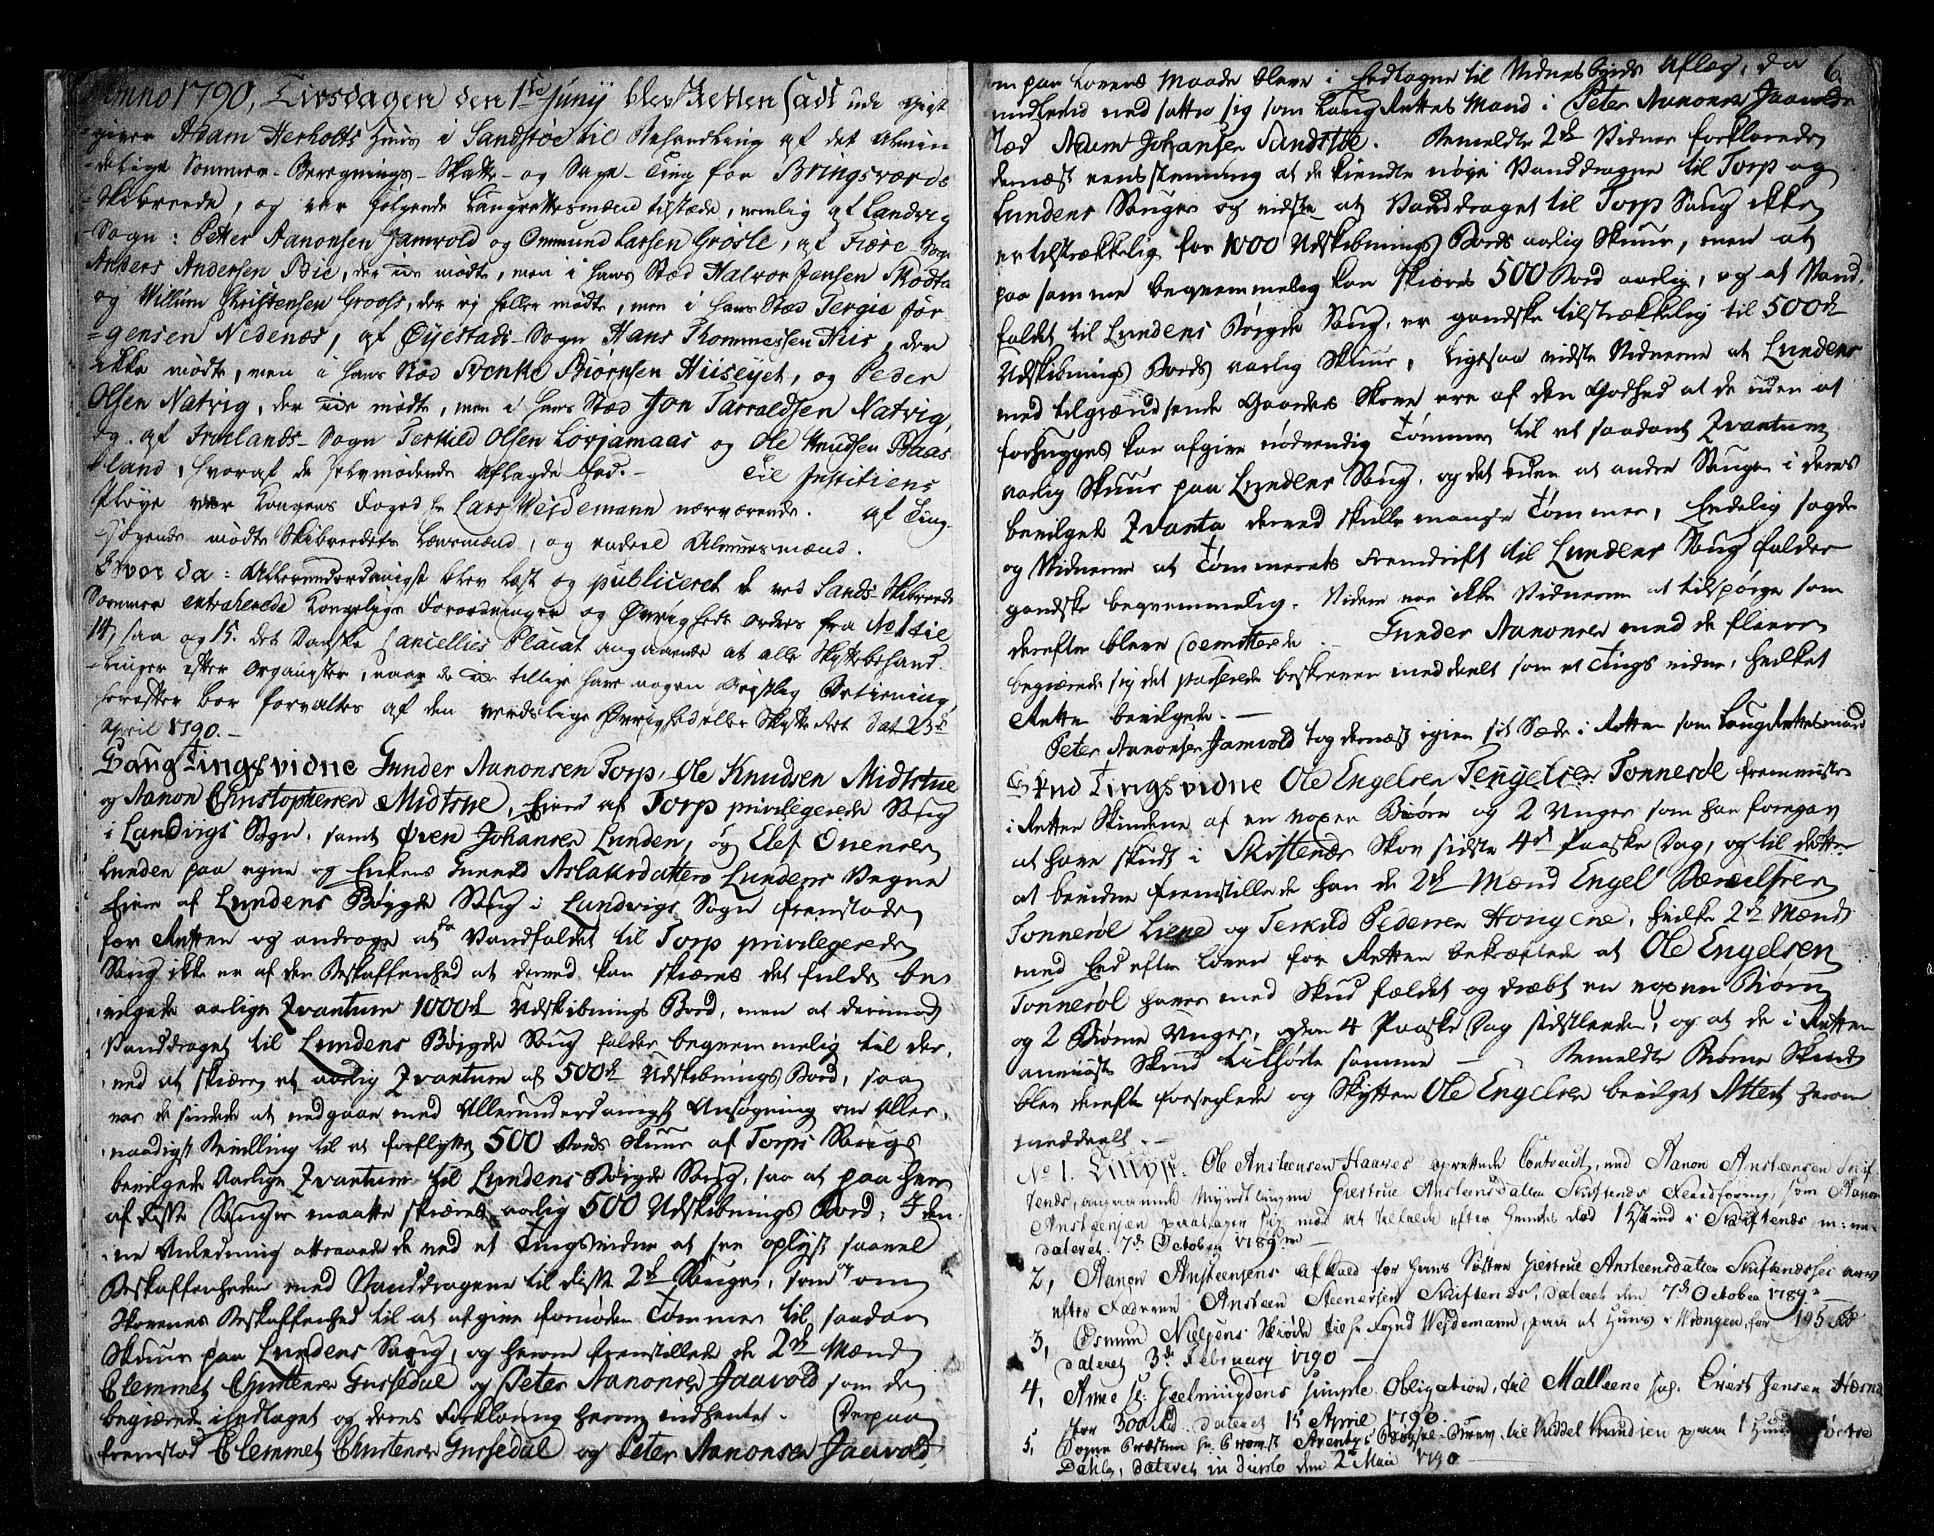 Anno 1790, Tirsdagen den 1ste Junij blev Retten sadt udi Giæst
giver Adam Herholts Huus i Sandstøe til Behandling af det Almin
-delige Sommer-Beregnings-Skatte- og Sage-Ting for Bringsværds
Skibreede, og var følgende Laugrettesmænd tilstæde, nemlig af Landvig
Sogn: Petter Aanonsen Jamvold og Ommund Larsen Grøsle, af Fiære-Sogn
Anders Andersen Bie, der mødte, men i hans Stæd Halvor Jensen
og Willum Christensen Grooss, der ej heller mødte, men i hans Stæd Tergie Jør-
-gensen Nedenæs, af Øyestads-Sogn Hans Thommessen Hiis, der
ikke mødte, men i hans Stæd Svenke Biørnsen Hiisøyet, og Peder
Olsen Natvig, der mødte, men i hans Stæd Jon Tarraldsen Natvig,
og af Froelands-Sogn Terkild Olsen Løvjamaas og Ole Knudsen Braas
-land, hvoraf de selvmødende aflagde Eed.- Til Justitiens
Pleye var Kongens Foged Hr Lars Weidemann nærværende. af Ting-
-søgende mødte Skibreedets Lænsmænd, og endeel Almuesmænd.
Hvor da: Allerunderdanigst blev læst og publiceret de ved Sands-Skibreede
Sommer entraherede Kongelige Forordninger og Øvrigheds Ordres fra No 1 til
14, saa og 15. det Danske Cancellies Placat angaaende at alle Skyttebehand-
-linger efter Organister, naar de tillige have nogen Betiening,
herefter bør forvaltes af den verdslige Øvrighed eller Skifte Ret dat. 23de
April 1790.-
Laug Tingsvidne Gunder Aanonsen Torp, Ole Knudsen Midtstue
og Aanon Christophersen Midtstue, Eiere af Torp privilegerede Saug
i Landvigs Sogn, samt Øven Johansen Lunden, og Elef Ouensen
Lunden paa egne og Enkens Gunnild Aslaksdatters Lundens Vegne
Eiere af Lundens Bøygde Saug i Landvigs Sogn fremstode
for Retten og androge at da Vandfaldet til Torp privilegerede
Saug ikke er af den Beskaffenhed at derved kan skiæres det fulde be-
vilgede aarlige Qvantum 1000de Udskibnings Bord, men at derimod
Vanddraget til Lundens Bøigde Saug falder beqvemmelig til der-
ved at skiære et aarlig Qvantum af 500de Udskibnings Bord, saa
var de sindede at indgaae med Allerunderdanigst Ansøgning om Aller-
naadigst Bevilling til at forflytte 500 Bords Skuur af Torps Saugs
bevilgede Aarlige Qvantum til Lundens Bøigde Saug, saa at paa hver
af disse Sauger maatte skiæres aarlig 500 Udskibnings Bord; I den-
ne Anledning attraaede de ved et Tingsvidne at see oplyst saavel
Beskaffenheden med Vanddragene til disse 2de Sauger, som og om
Skovenes Beskaffenhed til at afgive fornøden Tømmer til saadan
Skuur paa Lundens Saug, og herom fremstillede de 2de Mænd
Clemmet Christensen Gursedal og Peter Aanonsen Jaavold som de
begiærede i Eedtaget og deres Forklaring herom indhentet. Derpaa
fremstod Clemmet Christensen Gursedal og Peter Aanonsen Jaavold,
6.
som paa Lovens Maade bleve i Eedtagne til Vidnesbyrds Aflæg, da
imidlertid ned satte sig som Laug Rettes Mand i Peter Aanonsen Jaavolds
Stæd Adam Johansen Sandstøe. Bemeldte 2de Vidner forklarede
dernæst eensstemmig at de kiendte nøye Vanddragne til Torp og
Lundens Sauger og vidste at Vanddraget til Torp Saug ikke
er tilstrækkelig for 1000 Udskibnings Bords aarlig Skuur, men at
paa samme beqvemmelig kan skiæres 500 Bord aarlig, og at Vand-
faldet til Lundens Bøigde Saug, er gandske tilstrækkelig til 500de
Udskibnings Bords aarlig Skuur, ligesaa vidste Vidnerne at Lundens
med tilgrændsende Gaarders Skove ere af den Godhed at de uden at
forhugges kan afgive nødvendig Tømmer til et saadant Qvantum
aarlig Skuur paa Lundens Saug, og det uden at andre Sauger i deres
bevilgede Qvanta derved skulle mangle Tømmer, Endelig sagde
og Vidnerne at Tømmerets Fremdrift til Lundens Saug falder
gandske beqvemmelig. Videre var ikke Vidnerne at tilspørge som
derefter bleve demitterede. Gunder Aanonsen med de fleere
begiærede sig det passerede beskreven meddeelt som et Tings vidne, hvilket
Retten bevilgede.-
Peter Aanonsen Jamvold tog dernæst igien sit Sæde i Retten som Laug Rettesmand
End Tingsvidne Ole Engelsen Tengelsen Tonnerøl fremviste
i Retten Skindene af en voxen Biørn og 2 Unger som han foregav
at have skudt i Skiftenæs Skov sidste 4de Paaske Dag, og til dette
at bevidne fremstillede han de 2de Mænd Engel
Tonnerøl Liene og Terkild Pedersen Hongene, hvilke 2de Mænd
med Eed efter Loven for Retten bekræftede at Ole Engelsen
Tonnerøl haver med Skud fældet og dræbt en voxen Biørn
og 2 Biørne Unger, den 4 Paaske Dag sidstleeden, og at de i Retten
anviiste Skind tilhørte samme — Bemeldte Biørne Skind
blev derefter forseglede og Skytten Ole Engelsen bevilget Attest herom
meddeelt.-
No 1. Ole Ansteensen Haaves oprettede Contract, med Aanon Ansteensen Skif-
tenæs, angaaende Myndtlingen Giertrue Ansteensdatter Skiftenæs Fødføring, som Aanon
Ansteensen paatager sig mod at tilfalde efter hendes Død 1 Hstind i Skiftenæs m: m:
dateret 7de October 1789 —
2, Aanon Ansteensens afkald for hans Søster Giertrue Ansteensdatter Skiftenæsses arv
efter Faderen Ansteen Steenersen Skiftenæs, dateret den 7de October 1789 —
3, Osmun Nielsens Skiøde til Hr Foged Weidemann, paa et Huus i Vrængen for 195 rd
dateret 3de February 1790 —
4, Anne sl. Geelmuydens simple Obligation, til Malleene sal. Evert Jensen
stor 300 rd. dateret 15 April 1790.
5, Sogne Præsten Hr Bygsel-Brev til Kiddel Knudsen paa 1 Huud
Dahle, dateret den 2 Maii 1790 —